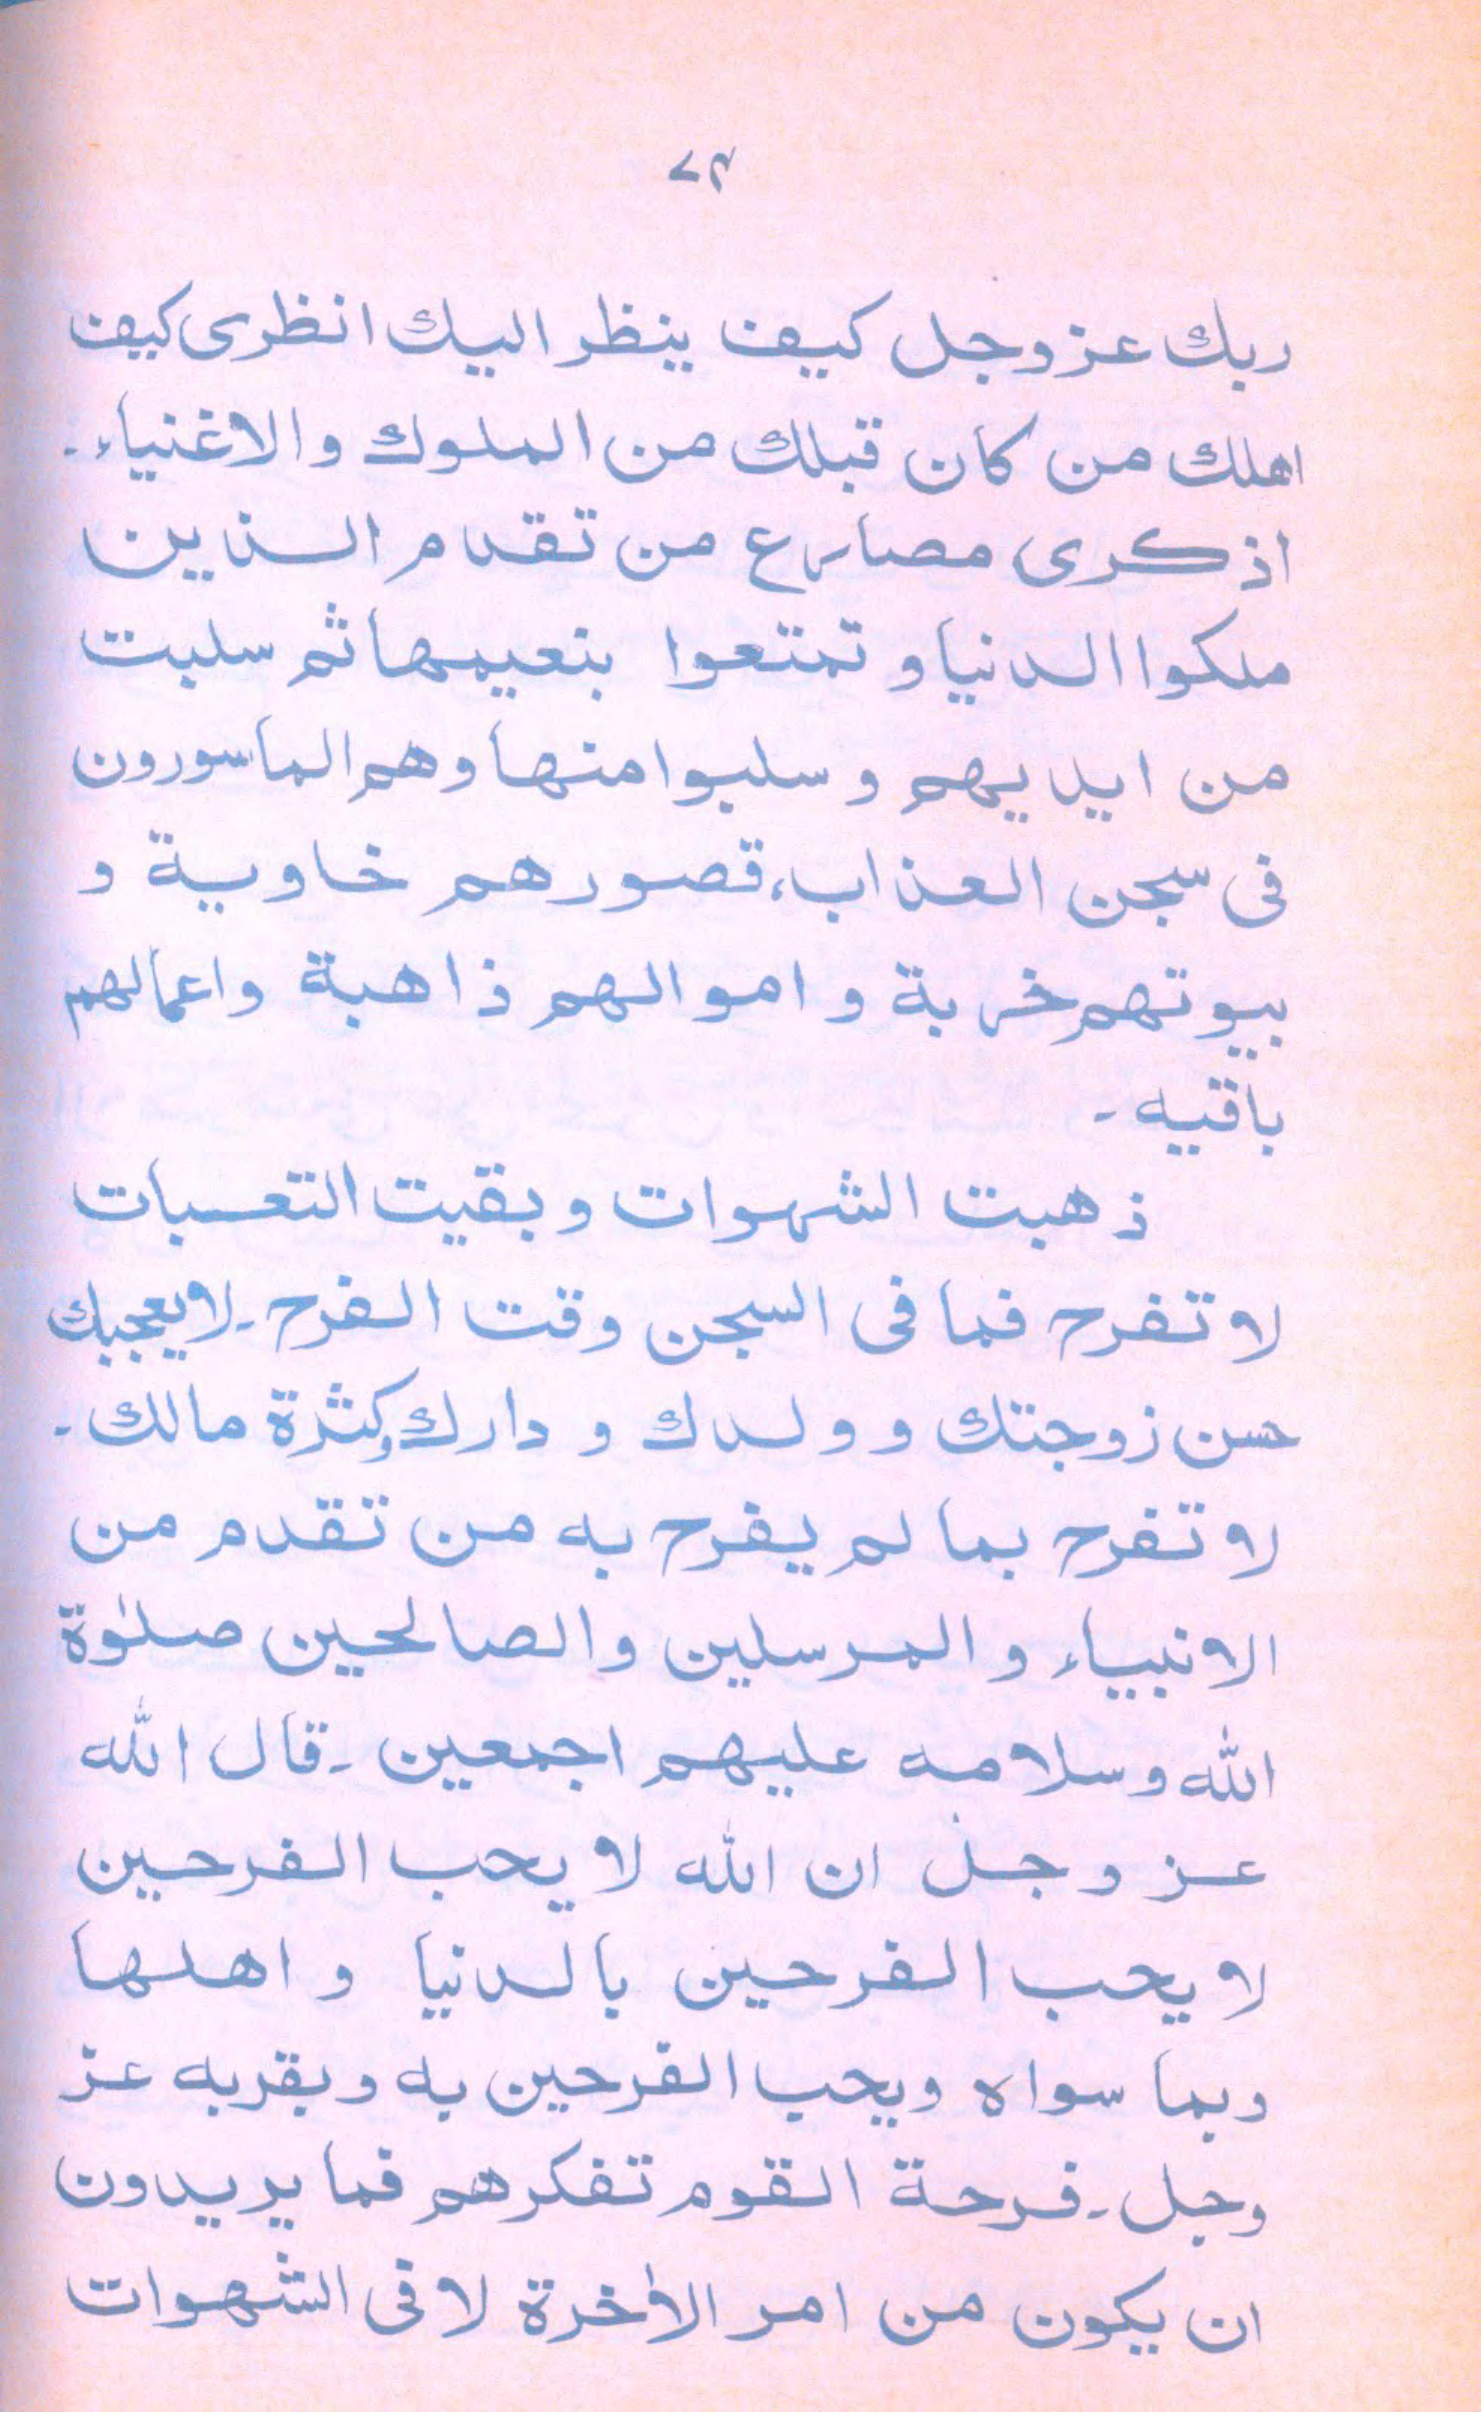 ۷۴
ربك عز وجل كيف ينظر اليك انظرى كيف
اهلك من كان قبلك من الملوك والاغنياء۔
اذكرى مصارع من تقدم الذين
ملكوا الدنيا و تمتعوا بنعيمها ثم سلبت
من ايديهم و سلبوا منها وهم الماسورون
فى سجن العذاب، قصورهم خاوية و
بيوتهم خربة و اموالهم ذاهبة واعمالهم
باقيه ۔
ذهبت الشهوات و بقيت التعسبات
لا تفرح فما فى السجن وقت الفرح ۔ لا يعجبك
حسن زوجتك و ولدك و دارك وكثرة مالك ۔
لا تفرح بما لم يفرح به من تقدم من
الانبياء و المرسلين والصالحين صلوٰة
الله وسلامه عليهم اجمعين ۔ قال الله
عز و جل ان الله لا يحب الفرحين
لا يحب الفرحين بالدنيا و اهلها
وبما سواه ويحب الفرحين به و بقربه عز
وجل ۔ فرحة القوم تفكرهم فما يريدون
ان يكون من امر الاٰخرة لا فى الشهوات